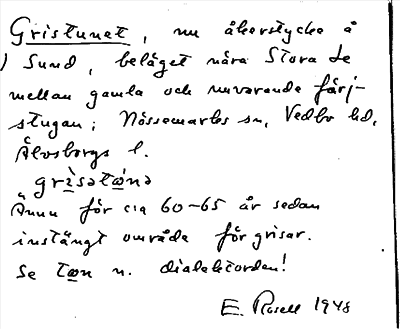 Gristunet, nu åkerstycke å
Sund, beläget nära Stora Le
mellan gamla och nuvarande färj-
stugan; Nössemarks sn, Vedbo hd,
Älvsborgs l.
grìsətùnə
Ännu för c:a 60-65 år sedan
instängt område för grisar.
Se tun n. dialektorden!
E. Rosell 1948